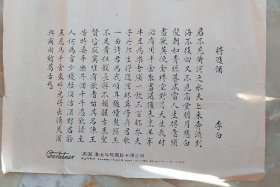 將進酒 李白
君不見黃河之水天上來奔流到
海不復回又不見高堂明鏡悲白
髮朝如青絲暮成雪人生得意須
盡歡莫使金樽空對月天生我材
必有用千金散盡還復來烹羊宰
牛且為樂會須一飲三百杯岑夫
子丹丘生將進酒君莫停與君歌
一曲請君為我傾耳聽鐘鼓饌玉
不足貴但願長醉不願醒古來聖
賢皆寂寞惟有飲者留其名陳王
昔時宴平樂斗酒十千恣歡謔主
人何為言少錢徑須沽酒對君酌
五花馬千金裘呼兒將出換美酒
與爾同銷萬古愁
股份有限公司